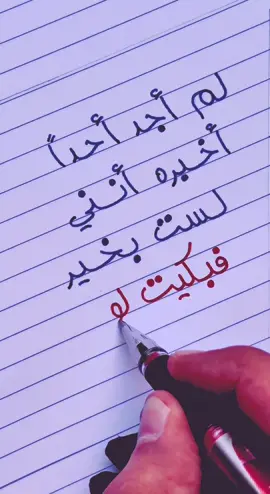 لم أجد أحداً
أخبره أنني
لست بخير
فبكيت لو